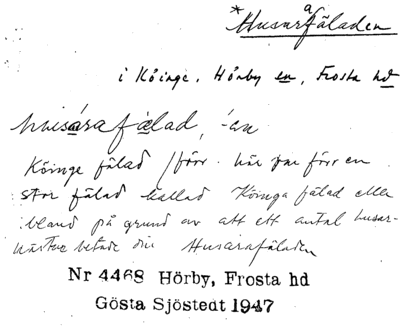 *Husarafäladen
i Köinge, Hörby sn, Frosta hd
husárafälad, -en
Köinge fälad /förr. här var förr en
stor fälad kallad Köinga fälad eller
bland på grund av att ett antal husar-
hästar betade där Husarafäladen
Nr 4468 Hörby, Frosta hd
Gösta Sjöstedt 1947